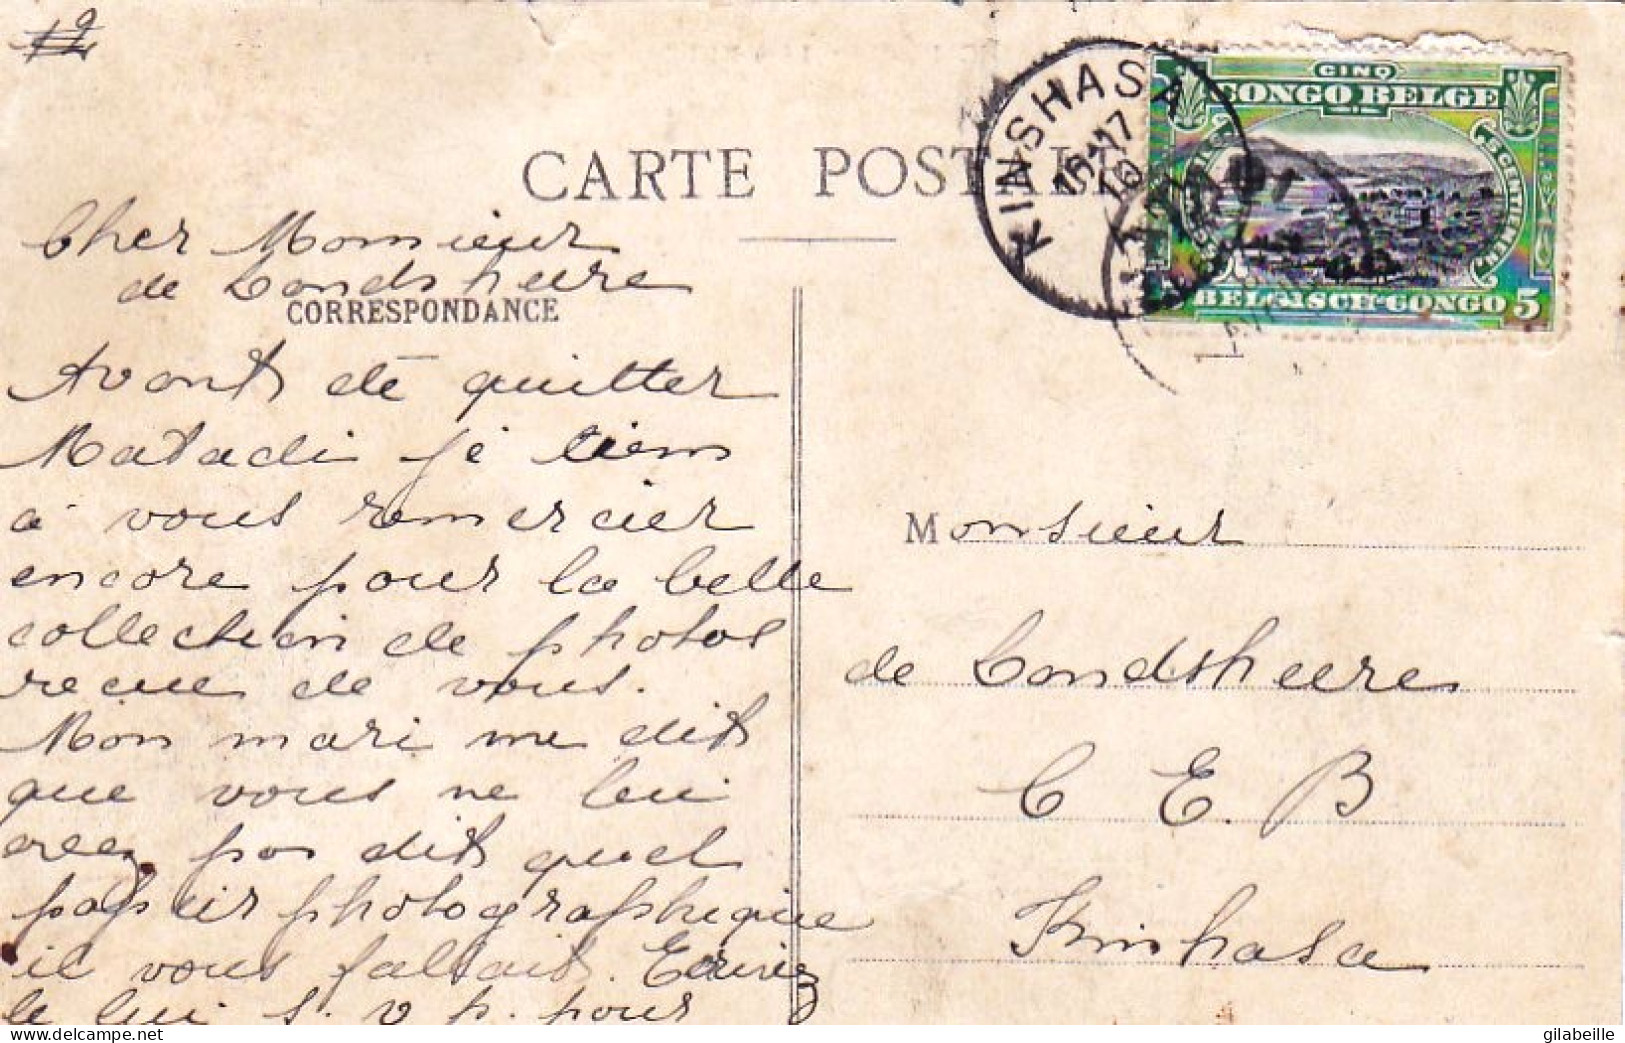 12 9
CARTE POSTALE
Cher Monsieur
de Landsheere
CORRESPONDANCE
Avant de quitter
Matadi je tiens
à vous remercier
encore pour la belle
collection de photos
recue de vous.
Mon mari me dit
que vous ne lui
avez pas dit quel
papier photographique
il vous fallait. Ecrivez
le lui s. v p. pour
KINSHASA
16-17
10
CINQ
CONGO BELGE
CENTIMES
BELGISCH-CONGO 5
Monsieur
de Landsheere
C E. B
Kinshasa
delcampe.net
gilabeille